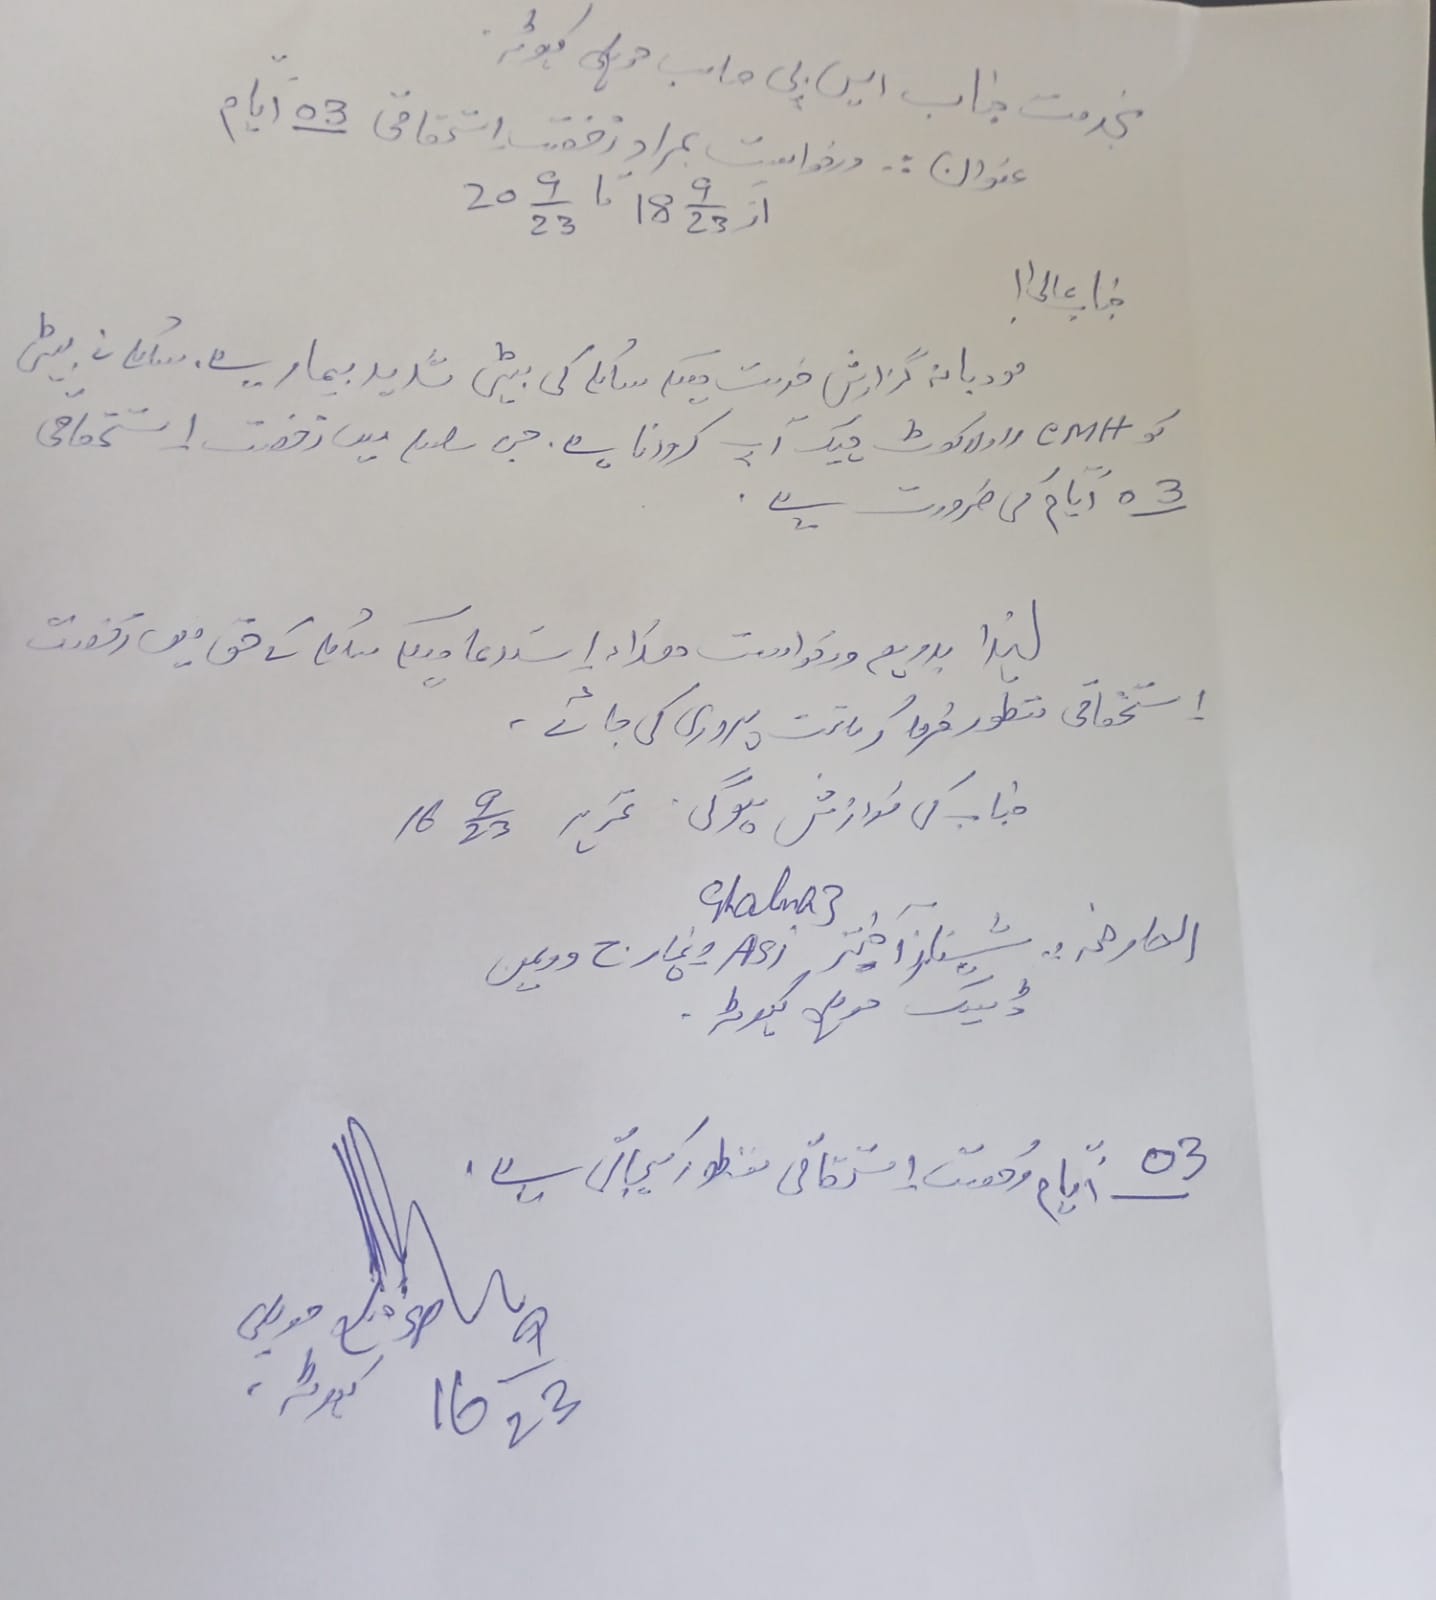 بخدمت جناب ایس پی صاحب حویلی کہوٹہ۔
عنوان :۔ درخواست بمراد رخصت استحقاقی 03 ایام
از 18 9/23 تا 20 9/23
جناب عالی!
مودبانہ گزارش خدمت ہیکہ سائلہ کی بیٹی شدید بیمار ہے۔ سائلہ نے بیٹی
کو CMH راولاکوٹ چیک اپ کروانا ہے۔ جس سلسلہ میں رخصت استحقاقی
03 ایام کی ضرورت ہے۔
لہذا بذریعہ درخواست ھذا استدعا ہیکہ سائلہ کے حق میں رخصت
استحقاقی منظور فرما کر ماتحت پروری کی جائے۔
جناب کی نوازش ہوگی۔ تحریر 16 9/23
Shahnaz
العارضہ :۔ شہناز اختر ASI انچارج وویمن
ڈیسک حویلی کہوٹہ۔
03 ایام رخصت استحقاقی منظور کیجاتی ہے۔
SP ضلع حویلی
کہوٹہ،
16 9/23